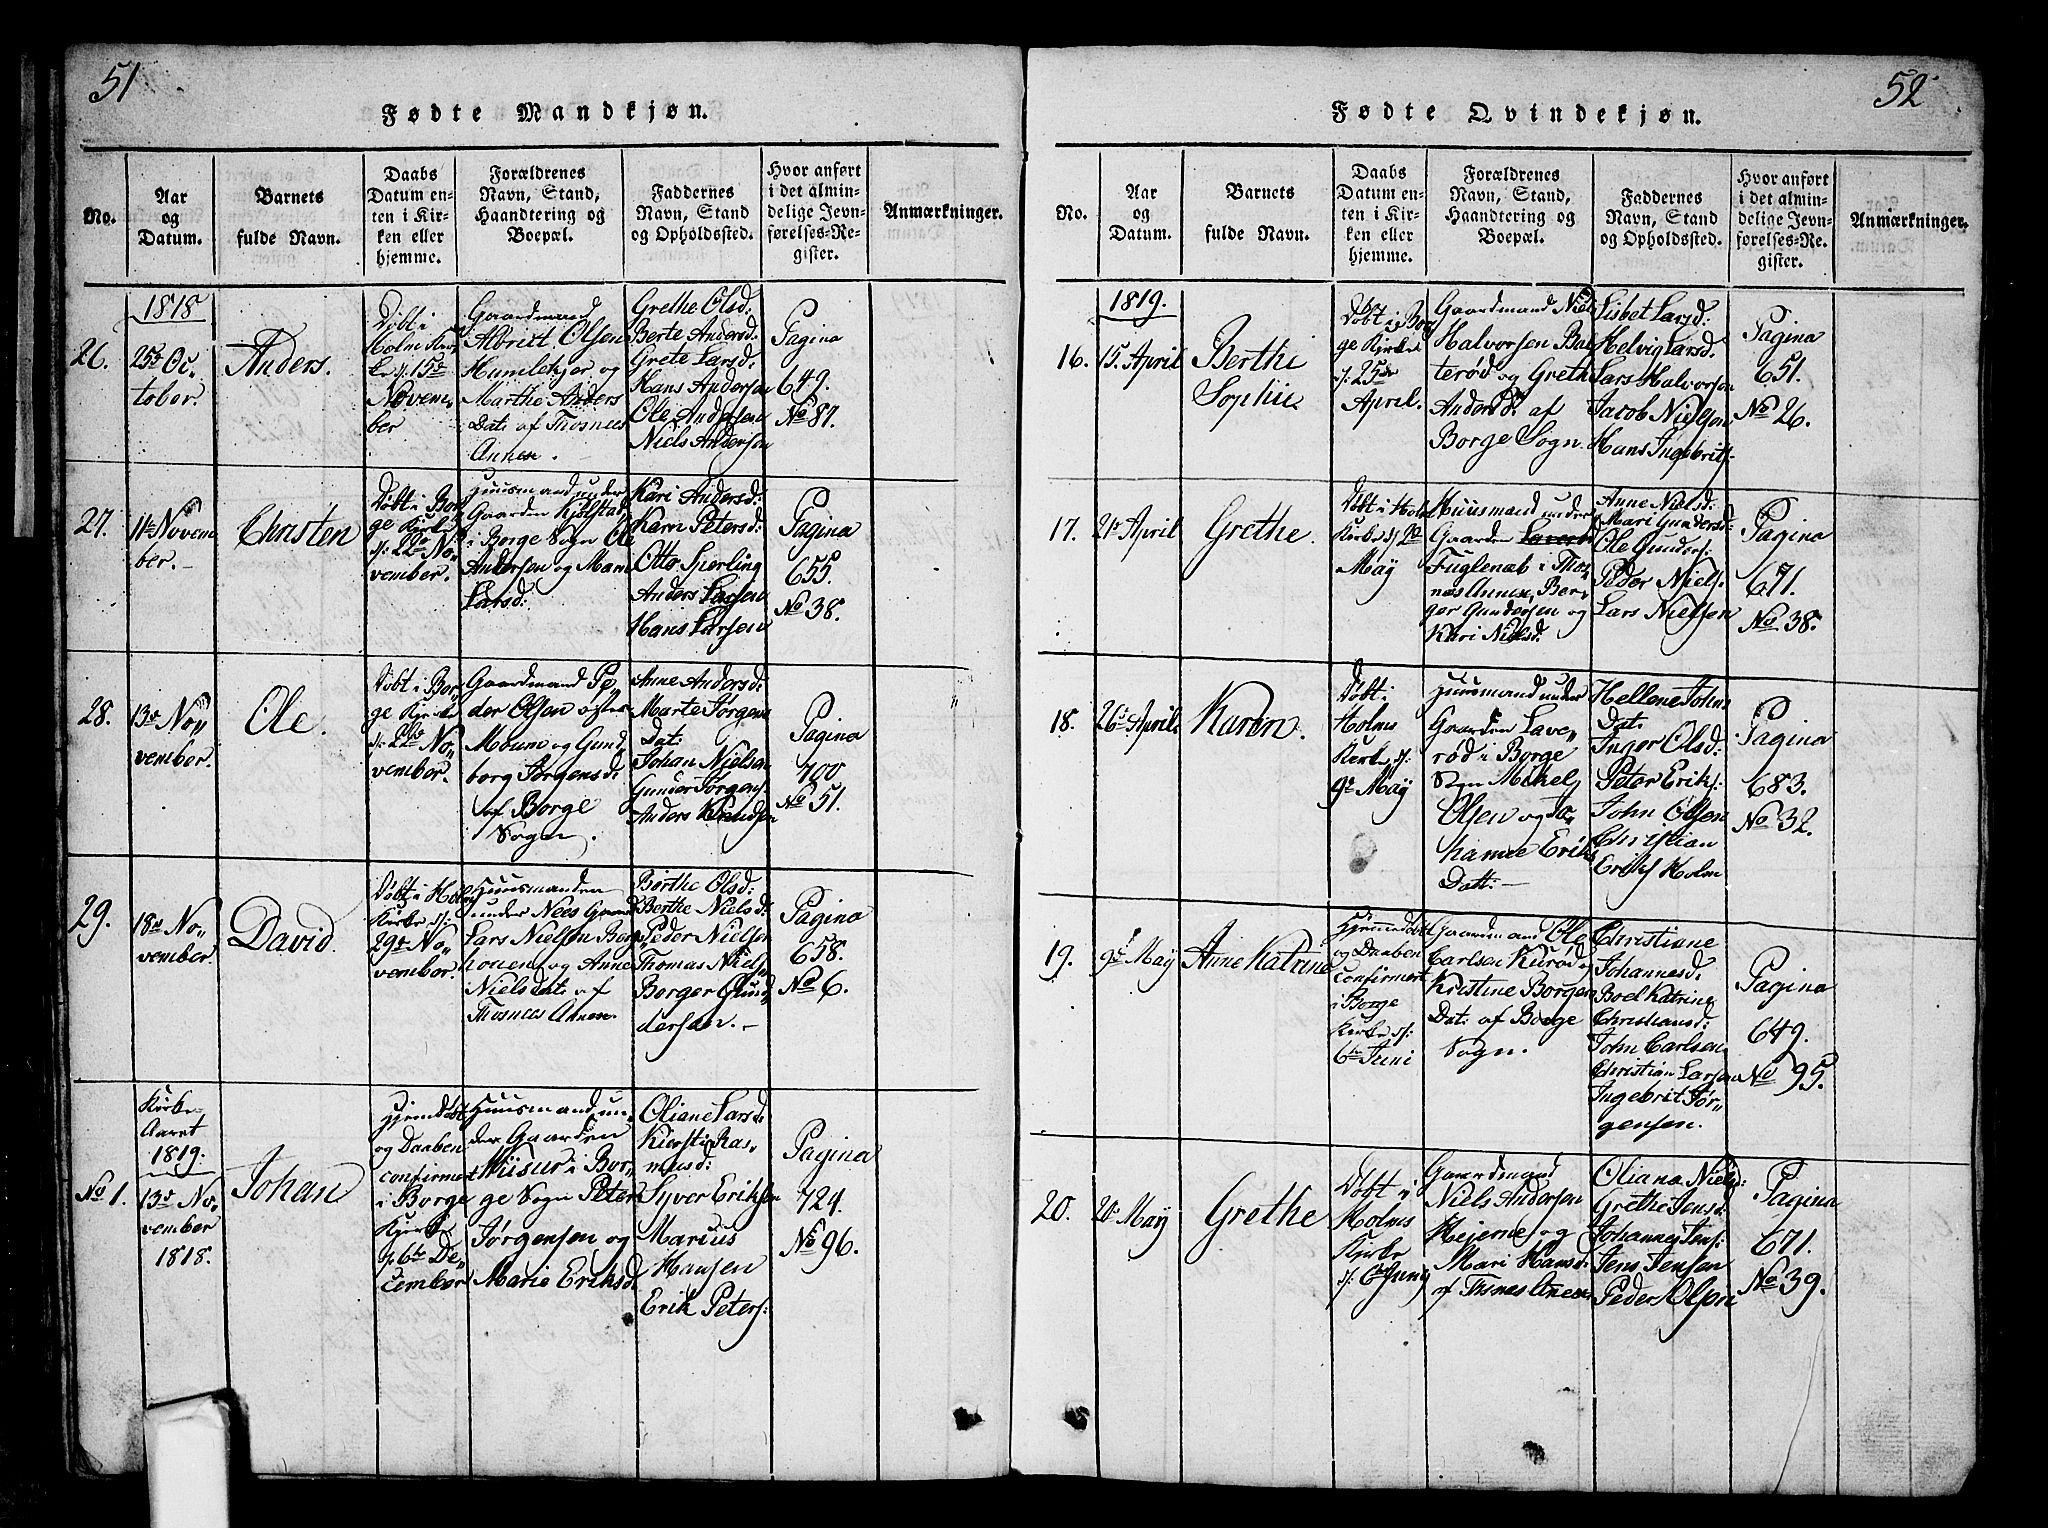 51
Fødte Mandkjøn.
No.
Aar
og
Datum.
Barnets
fulde Navn.
Daabs
Datum en-
ten i Kir-
ken eller
hjemme.
Forældrenes
Navn, Stand,
Haandtering og
Boepæl.
Faddernes
Navn, Stand
og Opholdssted.
Hvor anført
i det almin-
delige Jevn-
førelses-Re-
gister.
Anmærkninger.
26.
1818
25de Oc„
tober.
Anders.
Døbt i
Holms Kir„
ke d: 15de
Novem„
ber
Gaardmand
Albrixt Olsen
Humlekjær og
Marthe Anders
Dat: af Thosnees
Annex.
Grethe Olsd:
Berte Andersd:
Grete Larsd:
Hans Andersen
Ole Andersen
Niels Andersen
Pagina
649.
No 87.
27.
11te Novem
ber.
Christen
Døbt i Bor„
ge Kirke
d: 22de No„
vember.
Huusmand under
Gaarden Kjølstad
i Borge Sogn Ole
Andersen og Maren
Larsd:
Kari Andersd:
Karn Petersd:
Otto Sperling
Anders Larsen
Hans Larsen
Pagina
655.
No 38.
28.
13de No„
vember.
Ole.
Døbt i Bor„
ge Kirke
d: 22de No„
vember.
Gaardmand Pe„
der Olsen øster
Moum og Gund
borg Jørgensd:
af Borge
Sogn.
Anne Andersd:
Marte Jørgens
Dat:
Johan Nielsen
Gunder Jørgens:
Anders Knudsen
Pagina
700
No 51.
29.
18de No„
vember.
David.
Døbt i Holms
Kirke d:
29de No„
vember.
Huusmanden
under Nees Gaard
Lars Nielsen Berg
houen og Anne
Nielsdat: af
Thosnees Annex.
Børthe Olsd:
Berthe Nielsd:
Peder Nielsen
Thomas Niels:
Borger Gund
dersen.
Pagina
658.
No 6.
No 1.
Kirke-
Aaret
1819.
13de No„
vember
1818.
Johan
Hjemdøbt
og Daaben
confirmert
i Borge
Kirke
d: 6te De„
cember
Huusmand un„
der Gaarden
Miisur i Bor„
ge Sogn Peter
Jørgensen og
Marie Eriksd:
Oliane Larsd:
Kiersti Ras„
musd:
Syver Eriksen
Marius
Hansen
Erik Peters:
Pagina
724.
No 96.
52
Fødte Qvindekjøn.
No.
Aar
og
Datum.
Barnets
fulde Navn.
Daabs
Datum en-
ten i Kir-
ken eller
hjemme.
Forældrenes
Navn, Stand,
Haandtering og
Boepæl.
Faddernes
Navn, Stand
og Opholdssted.
Hvor anført
i det almin-
delige Jevn-
førelses-Re-
gister.
Anmærkninger.
16.
1819.
15. April
Berthe
Sophie.
Døbt i Bor
ge Kirke
d: 25de
April.
Gaardmand Niels
Halvorsen Bae
terød og Grethe
Andersd: af
Borge Sogn.
Lisbet Larsd:
Helvig Larsd.
Lars Halvorsen
Jacob Nielsen
Hans Ingebrits:
Pagina
651.
No 26.
17.
21de April
Grethe.
Døbt i Holms
Kirke d: 2de
May
Huusmand under
Gaarden
Fuglenæb i Thos„
nes Annex, Bør„
ger Gundersen og
Kari Nielsd.
Anne Nielsd:
Mari Gundersd:
Ole Gunders:
Peder Niels:
Lars Nielsen
Pagina
671.
No 38.
18.
26de April
Karen.
Døbt i
Holms
Kirke d:
9de May
Huusmand under
Gaarden Lave„
rød i Borge
Sogn Mikel
Olsen og Jo„
hanne Eriks
Datt:
Hellene Johns
Dat:
Inger Olsd:
Peter Eriks:
John Olsen
Christian
Eriks Holm
Pagina
683.
No 32.
19.
9de May
Anne Katrine
Hjemmedøbt
og Daaben
confirmert
i Borge
Kirke d:
6te Juni
Gaardmand Ole
Carlsen Kurød og
Kristine Borger
Dat: af Borge
Sogn.
Christiane
Johannesd:
Boel Katrine
Christiansd:
John Carlsen
Christian Larsen
Ingebrit Jør„
gensen.
Pagina
649.
No 95.
20.
20de May
Grethe
Døbt i
Holms
Kirke
Gaardmand
Niels Andersen
Hejerne og
Mari Hansd:
af Thosnes Annex
Oliana Nielsd:
Grethe Jensd:
Johannes Jens:
Jens Jensen
Peder Olsen
Pagina
671.
No 39.